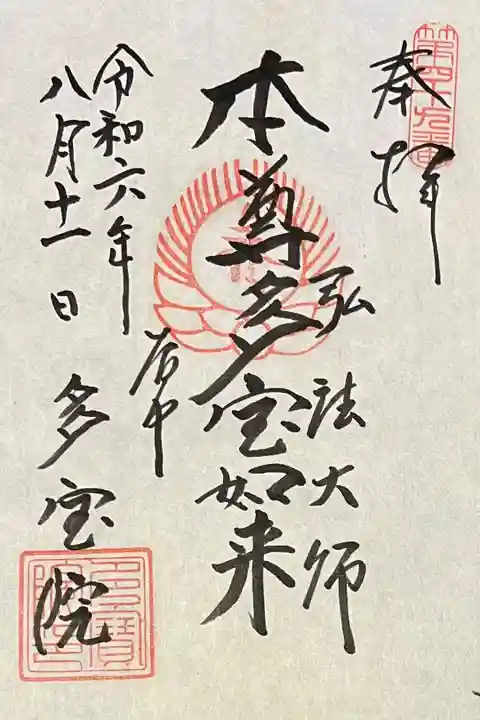 奉拝
第四十九番
弘法大師
本尊多宝如来
令和六年
八月十一日
多宝院